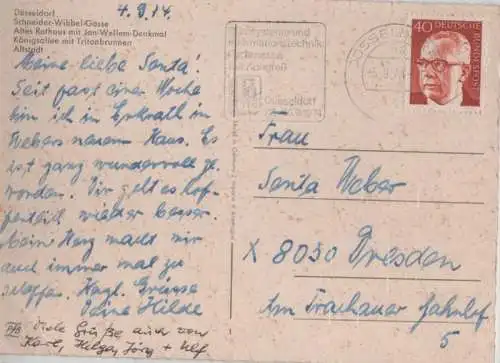 Düsseldorf
Schneider-Wibbel-Gasse
Altes Rathaus mit Jan-Wellem-Denkmal
Königsallee mit Tritonbrunnen
Altstadt
4.9.74.
Meine liebe Senta!
Seit fast einer Woche
bin ich in Erkrath in
Webers neuem Haus. Es
ist ganz wundervoll ge-
worden. Dir geht es hof-
fentlich wieder besser.
Mein Herz macht mir
auch immer mal zu
schaffen. Herzl. Grüsse
Deine Hilde
Viele Grüße auch von
Karl, Helga, Jörg + Ulf
Düsseldorf
40 DEUTSCHE BUNDESPOST
Frau
Senta Weber
X 8030 Dresden
Am Trachauer Bahnhof
5